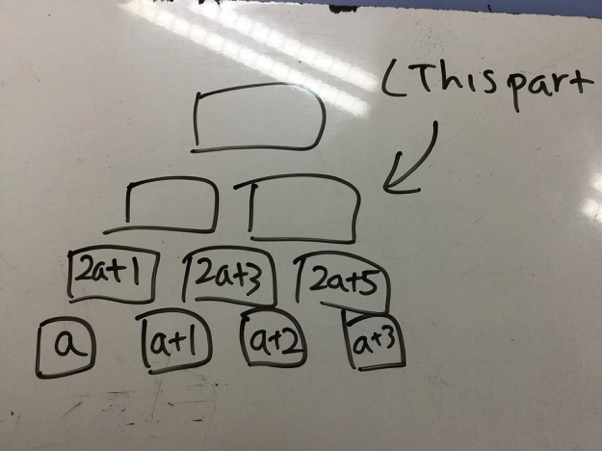 (This part
2a+1 2a+3 2a+5
a a+1 a+2 a+3